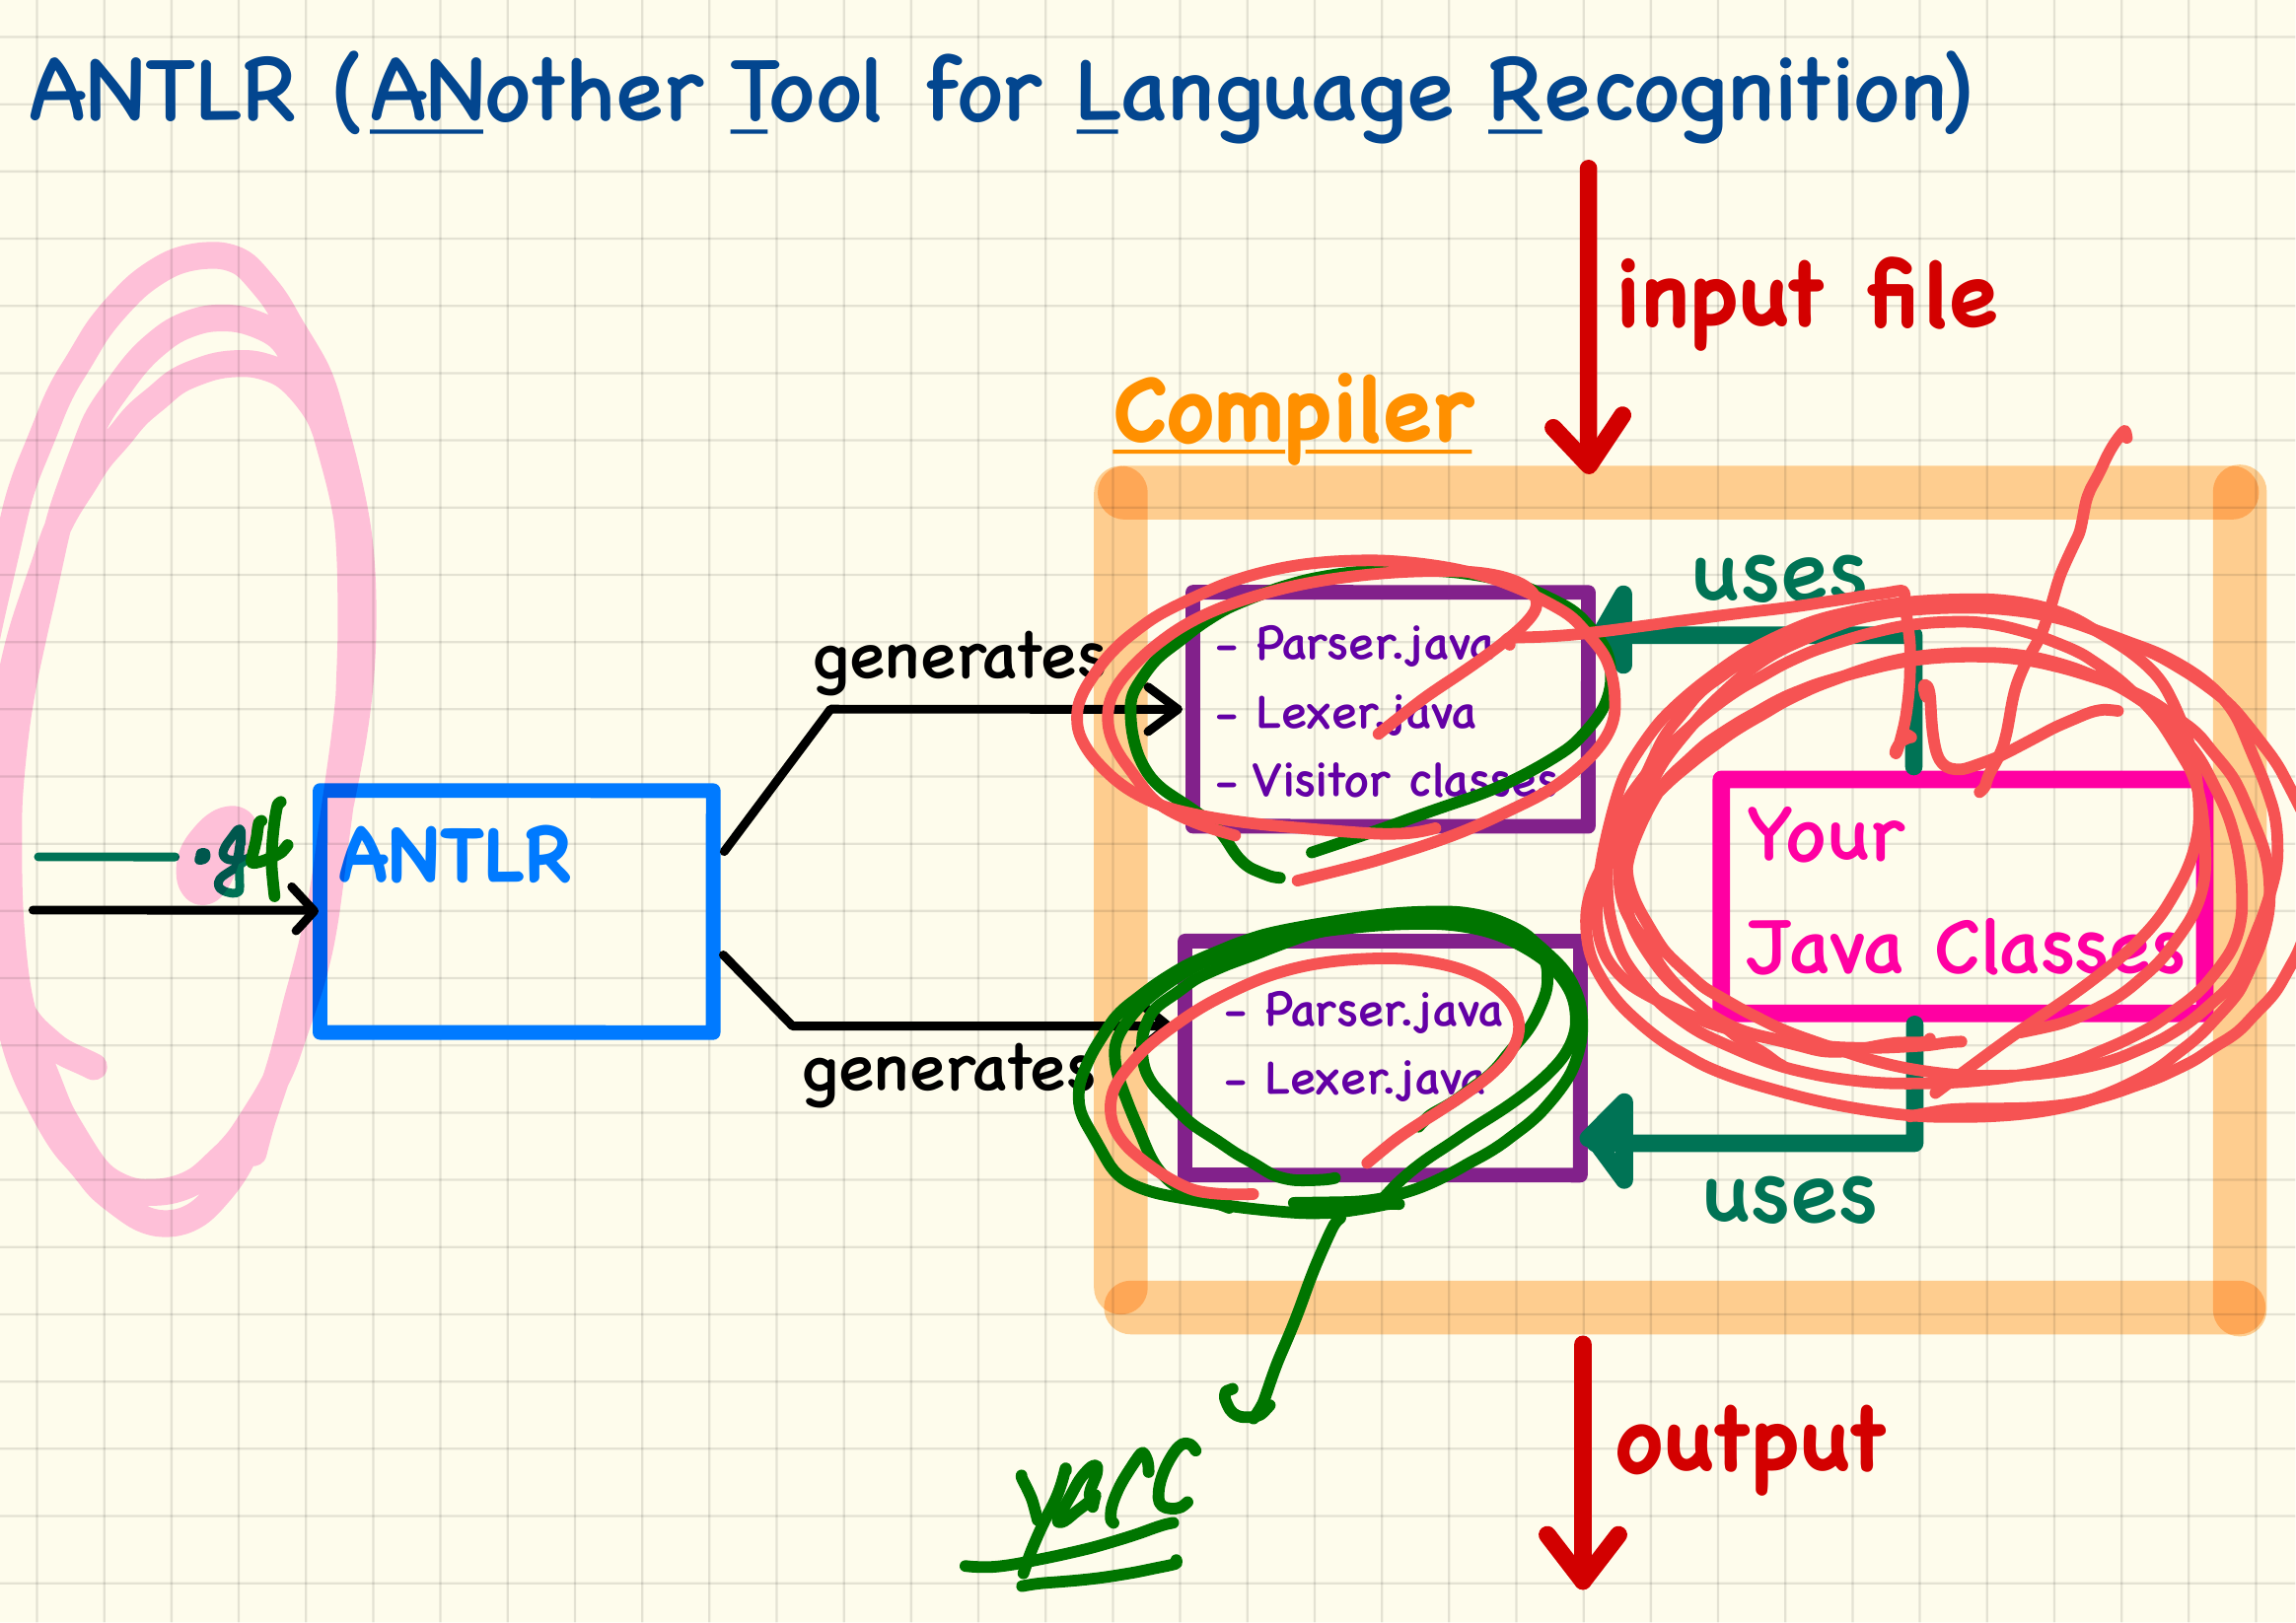 ANTLR (ANother Tool for Language Recognition)
input file
Compiler
uses
generates
- Parser.java
- Lexer.java
- Visitor classes
.g4
ANTLR
Your
Java Classes
- Parser.java
- Lexer.java
generates
uses
output